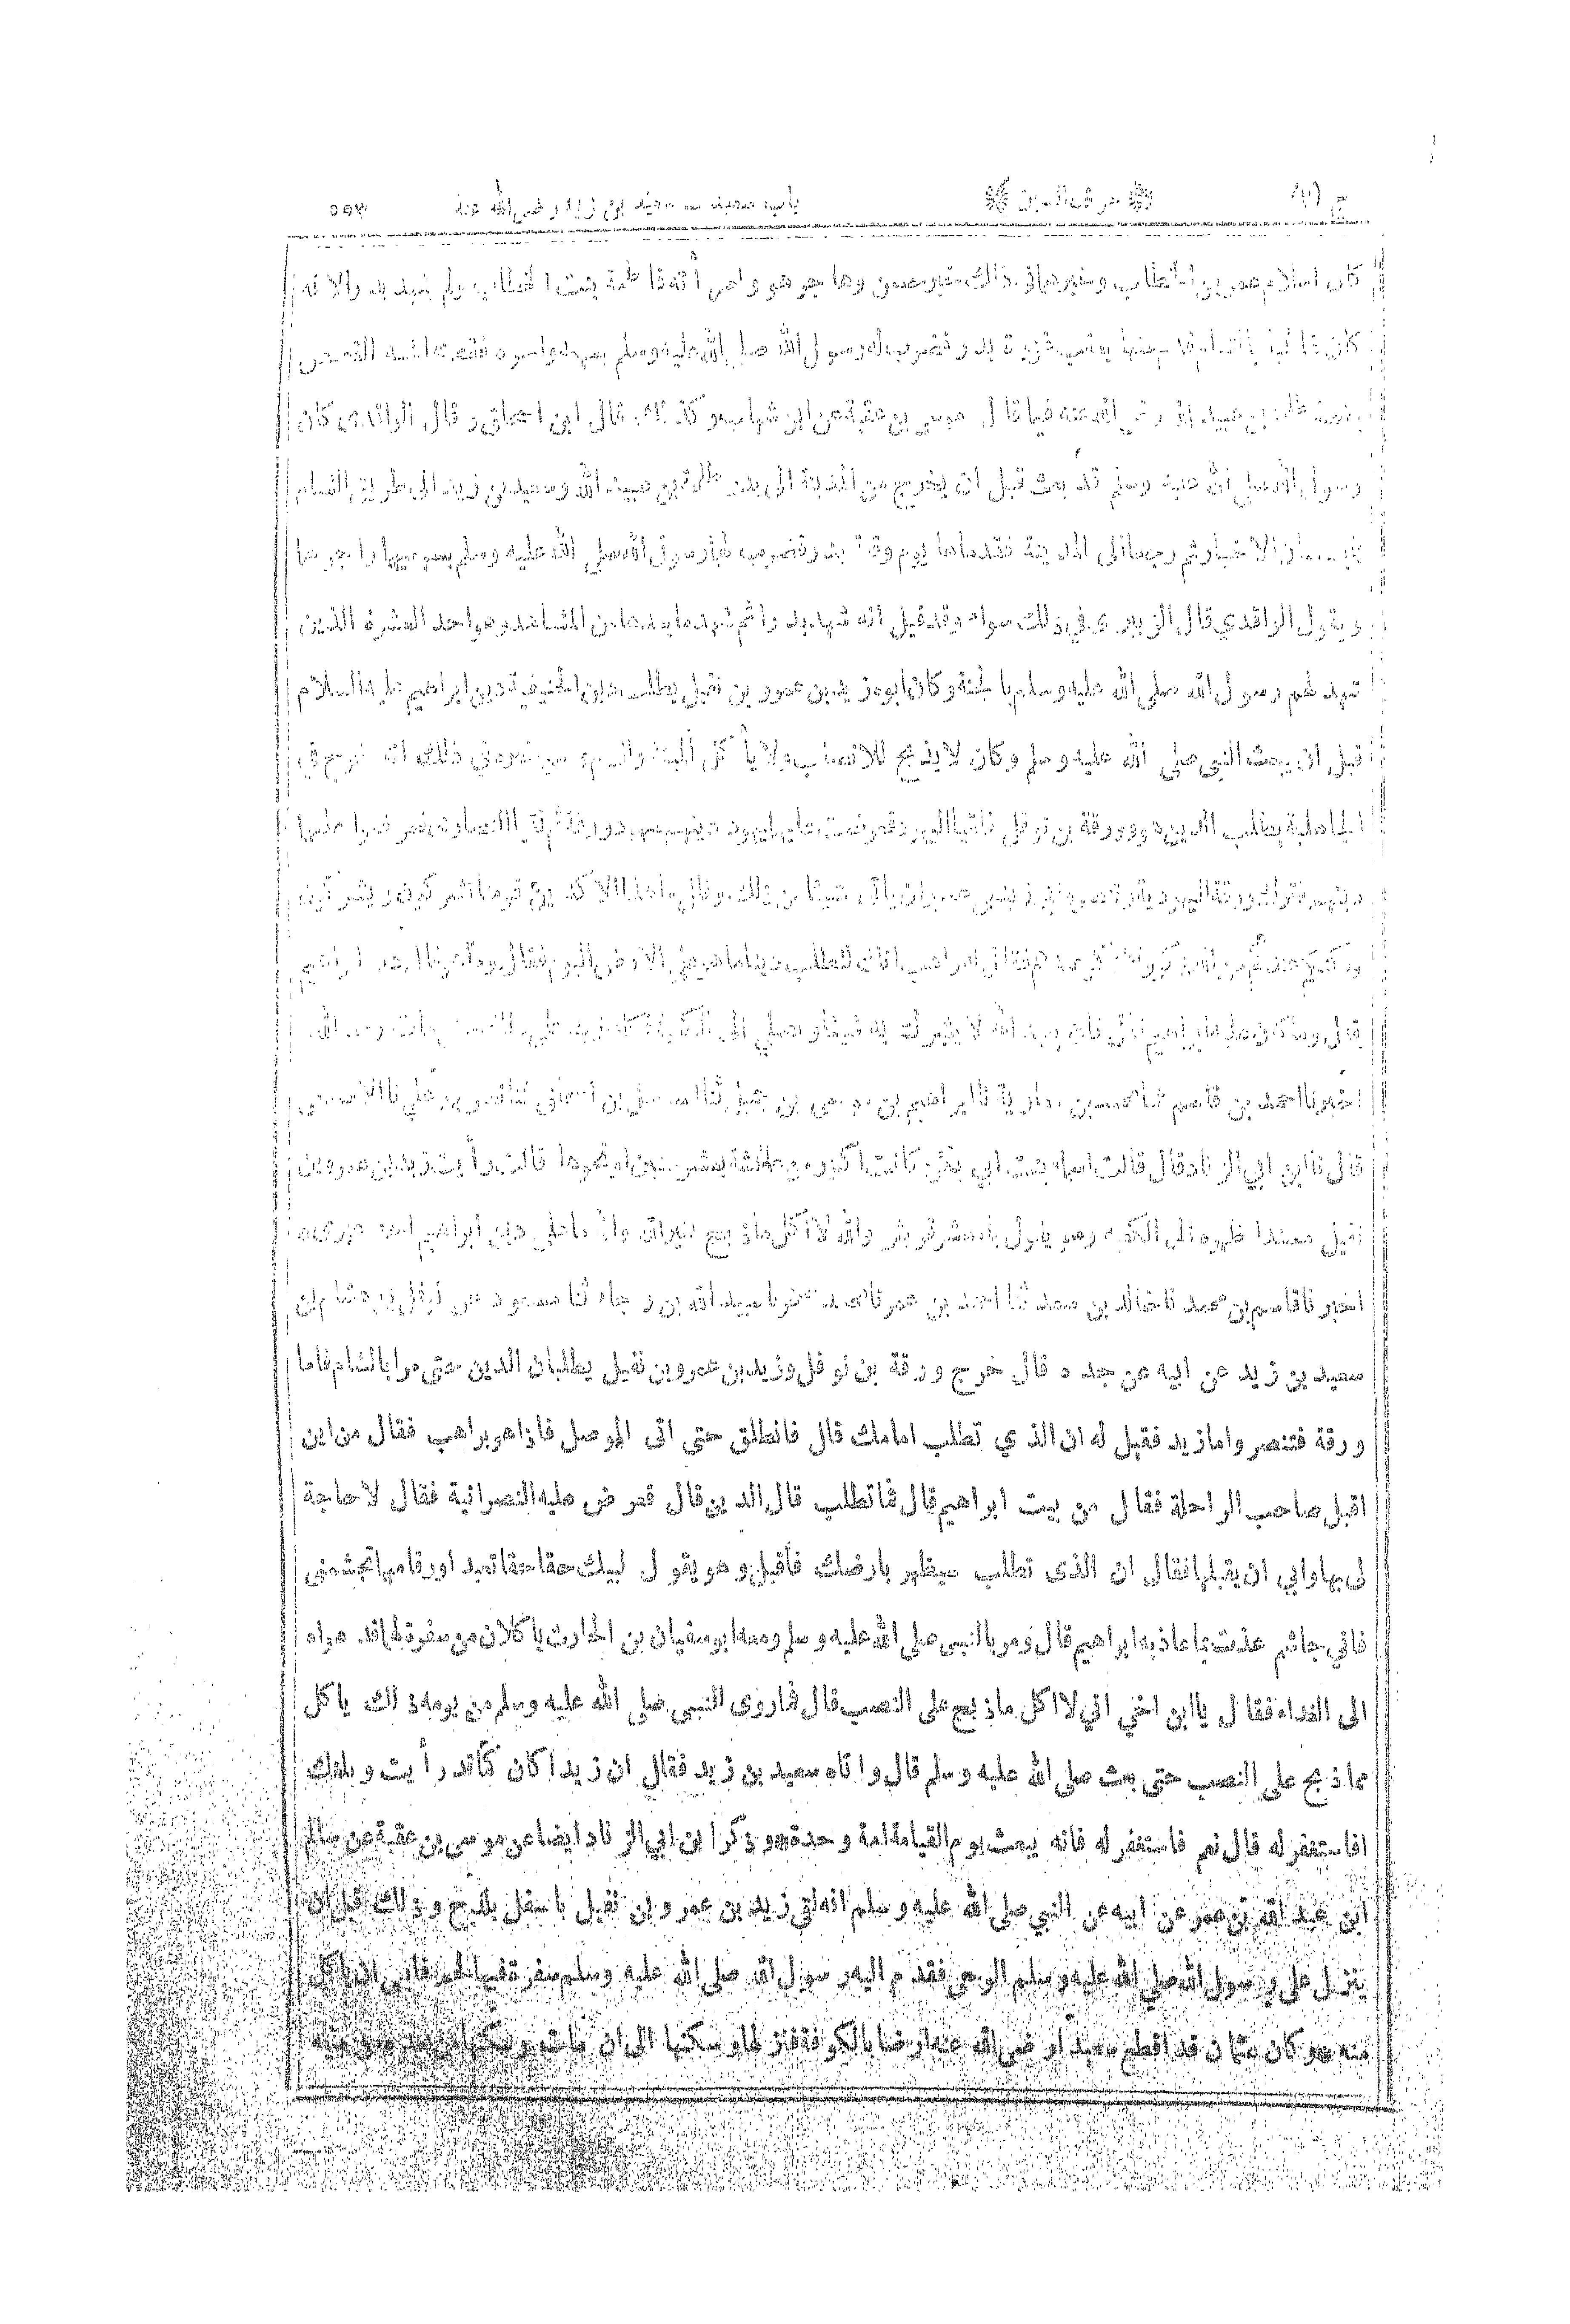 ج (٢) حرف السين باب سعيد — سعيد بن زيد رضي الله عنه
كان اسلام عمر بن الخطاب وخبرهما في ذلك خبر حسن وهاجر هو وامرأته فاطمة بنت الخطاب ولم يشهد بدرا لانه
كان غائبا بالشام قدم منها بعقب غزوة بدر فضرب له رسول الله صلى الله عليه وسلم بسهمه واجره
طلحة بن عبيد الله رضي الله عنه فيما قال موسى بن عقبة عن ابن شهاب وكذلك قال ابن اسحاق وقال الواقدي كان
رسول الله صلى الله عليه وسلم قد بعث قبل ان يخرج من المدينة الى بدر طلحة بن عبيد الله وسعيد بن زيد الى طريق الشام
يتجسسان الاخبار ثم رجعا الى المدينة فقدماها يوم وقعة بدر فضرب لهما رسول الله صلى الله عليه وسلم بسهميهما واجرهما
وبقول الواقدي قال الزبيرى في ذلك سواء وقد قيل انه شهد بدرا ثم شهد ما بعدها من المشاهد وهو احد العشرة الذين
شهد لهم رسول الله صلى الله عليه وسلم بالجنة وكان ابوه زيد بن عمرو بن نفيل يطلب دين الحنيفية دين ابراهيم عليه السلام
قبل ان يبعث النبي صلى الله عليه وسلم وكان لا يذبح للانصاب ولا يأكل الميتة والدم ومن خبره في ذلك انه خرج في
الجاهلية يطلب الدين هو وورقة بن نوفل فلقيا اليهود فعرضت عليهما يهود دينهم فتهود ورقة ثم لقيا النصارى فعرضوا عليهما
دينهم فترك ورقة اليهودية وتنصر وابى زيد بن عمرو ان يأتي شيئا من ذلك وقال ما هذا الا كدين قومنا تشركون ويشركون
فقال له الراهب انك لتطلب دينا ما هو على الارض اليوم فقال وما هو قال دين ابراهيم
قال وما كان عليه ابراهيم قال كان يعبد الله لا يشرك به شيئا ويصلي الى الكعبة فكان زيد على ذلك حتى مات رحمه الله
اخبرنا احمد بن قاسم نا محمد بن معاوية نا ابراهيم بن موسى بن جميل ثنا اسمعيل بن اسحاق ثنا نصر بن علي نا الاصمعى
قال نا ابن ابي الزناد قال قالت اسماء بنت ابي بكر وكانت اكبر من عائشة بعشر سنين او نحوها قالت رأيت زيد بن عمرو بن
نفيل مسندا ظهره الى الكعبة وهو يقول يا معشر قريش والله لا آكل ما ذبح لغير الله والله ما على دين ابراهيم احد غيرى
اخبرنا قاسم بن محمد نا خالد بن سعد ثنا احمد بن عمر نا محمد بن سنجر نا عبيد الله بن رجاء ثنا مسعود عن نوفل بن هشام بن
سعيد بن زيد عن ابيه عن جده قال خرج ورقة بن نوفل وزيد بن عمرو بن نفيل يطلبان الدين حتى مرا بالشام فاما
ورقة فتنصر واما زيد فقيل له ان الذي تطلب امامك قال فانطلق حتى اتى الموصل فاذا هو براهب فقال من اين
اقبل صاحب الراحلة فقال من بيت ابراهيم قال فما تطلب قال الدين قال فعرض عليه النصرانية فقال لا حاجة
لى بها وابي ان يقبلها فقال ان الذى تطلب سيظهر بارضك فأقبل وهو يقول لبيك حقا حقا تعبد اورقا مهما تجشمنى
فاني جاشم عذت بما عاذ به ابراهيم قال ومر بالنبى صلى الله عليه وسلم ومعه ابوسفيان بن الحارث ياكلان من سفرة لهما فدعواه
الى الغداء فقال يا ابن اخي اني لا اكل ما ذبح على النصب قال فما روى النبى صلى الله عليه وسلم من يومه ذلك ياكل
مما ذبح على النصب حتى بعث صلى الله عليه وسلم قال واتاه سعيد بن زيد فقال ان زيدا كان كما قد رأيت وبلغك
افاستغفر له قال نعم فاستغفر له فانه يبعث يوم القيامة امة وحدة ۞ وذكر ابن ابي الزناد ايضا عن موسى بن عقبة عن سالم
ابن عبد الله بن عمر عن ابيه عن النبي صلى الله عليه وسلم انه لقي زيد بن عمرو بن نفيل باسفل بلدح وذلك قبل ان
ينزل على رسول الله صلي الله عليه وسلم الوحى فقدم اليه رسول الله صلى الله عليه وسلم سفرة فيها لحم فابى ان ياكل
منه ۞ وكان عثمان قد اقطع سعيدا رضى الله عنه ارضا بالكوفة فنزلها وسكنها الى ان مات وسكنها من بعده من بنيه